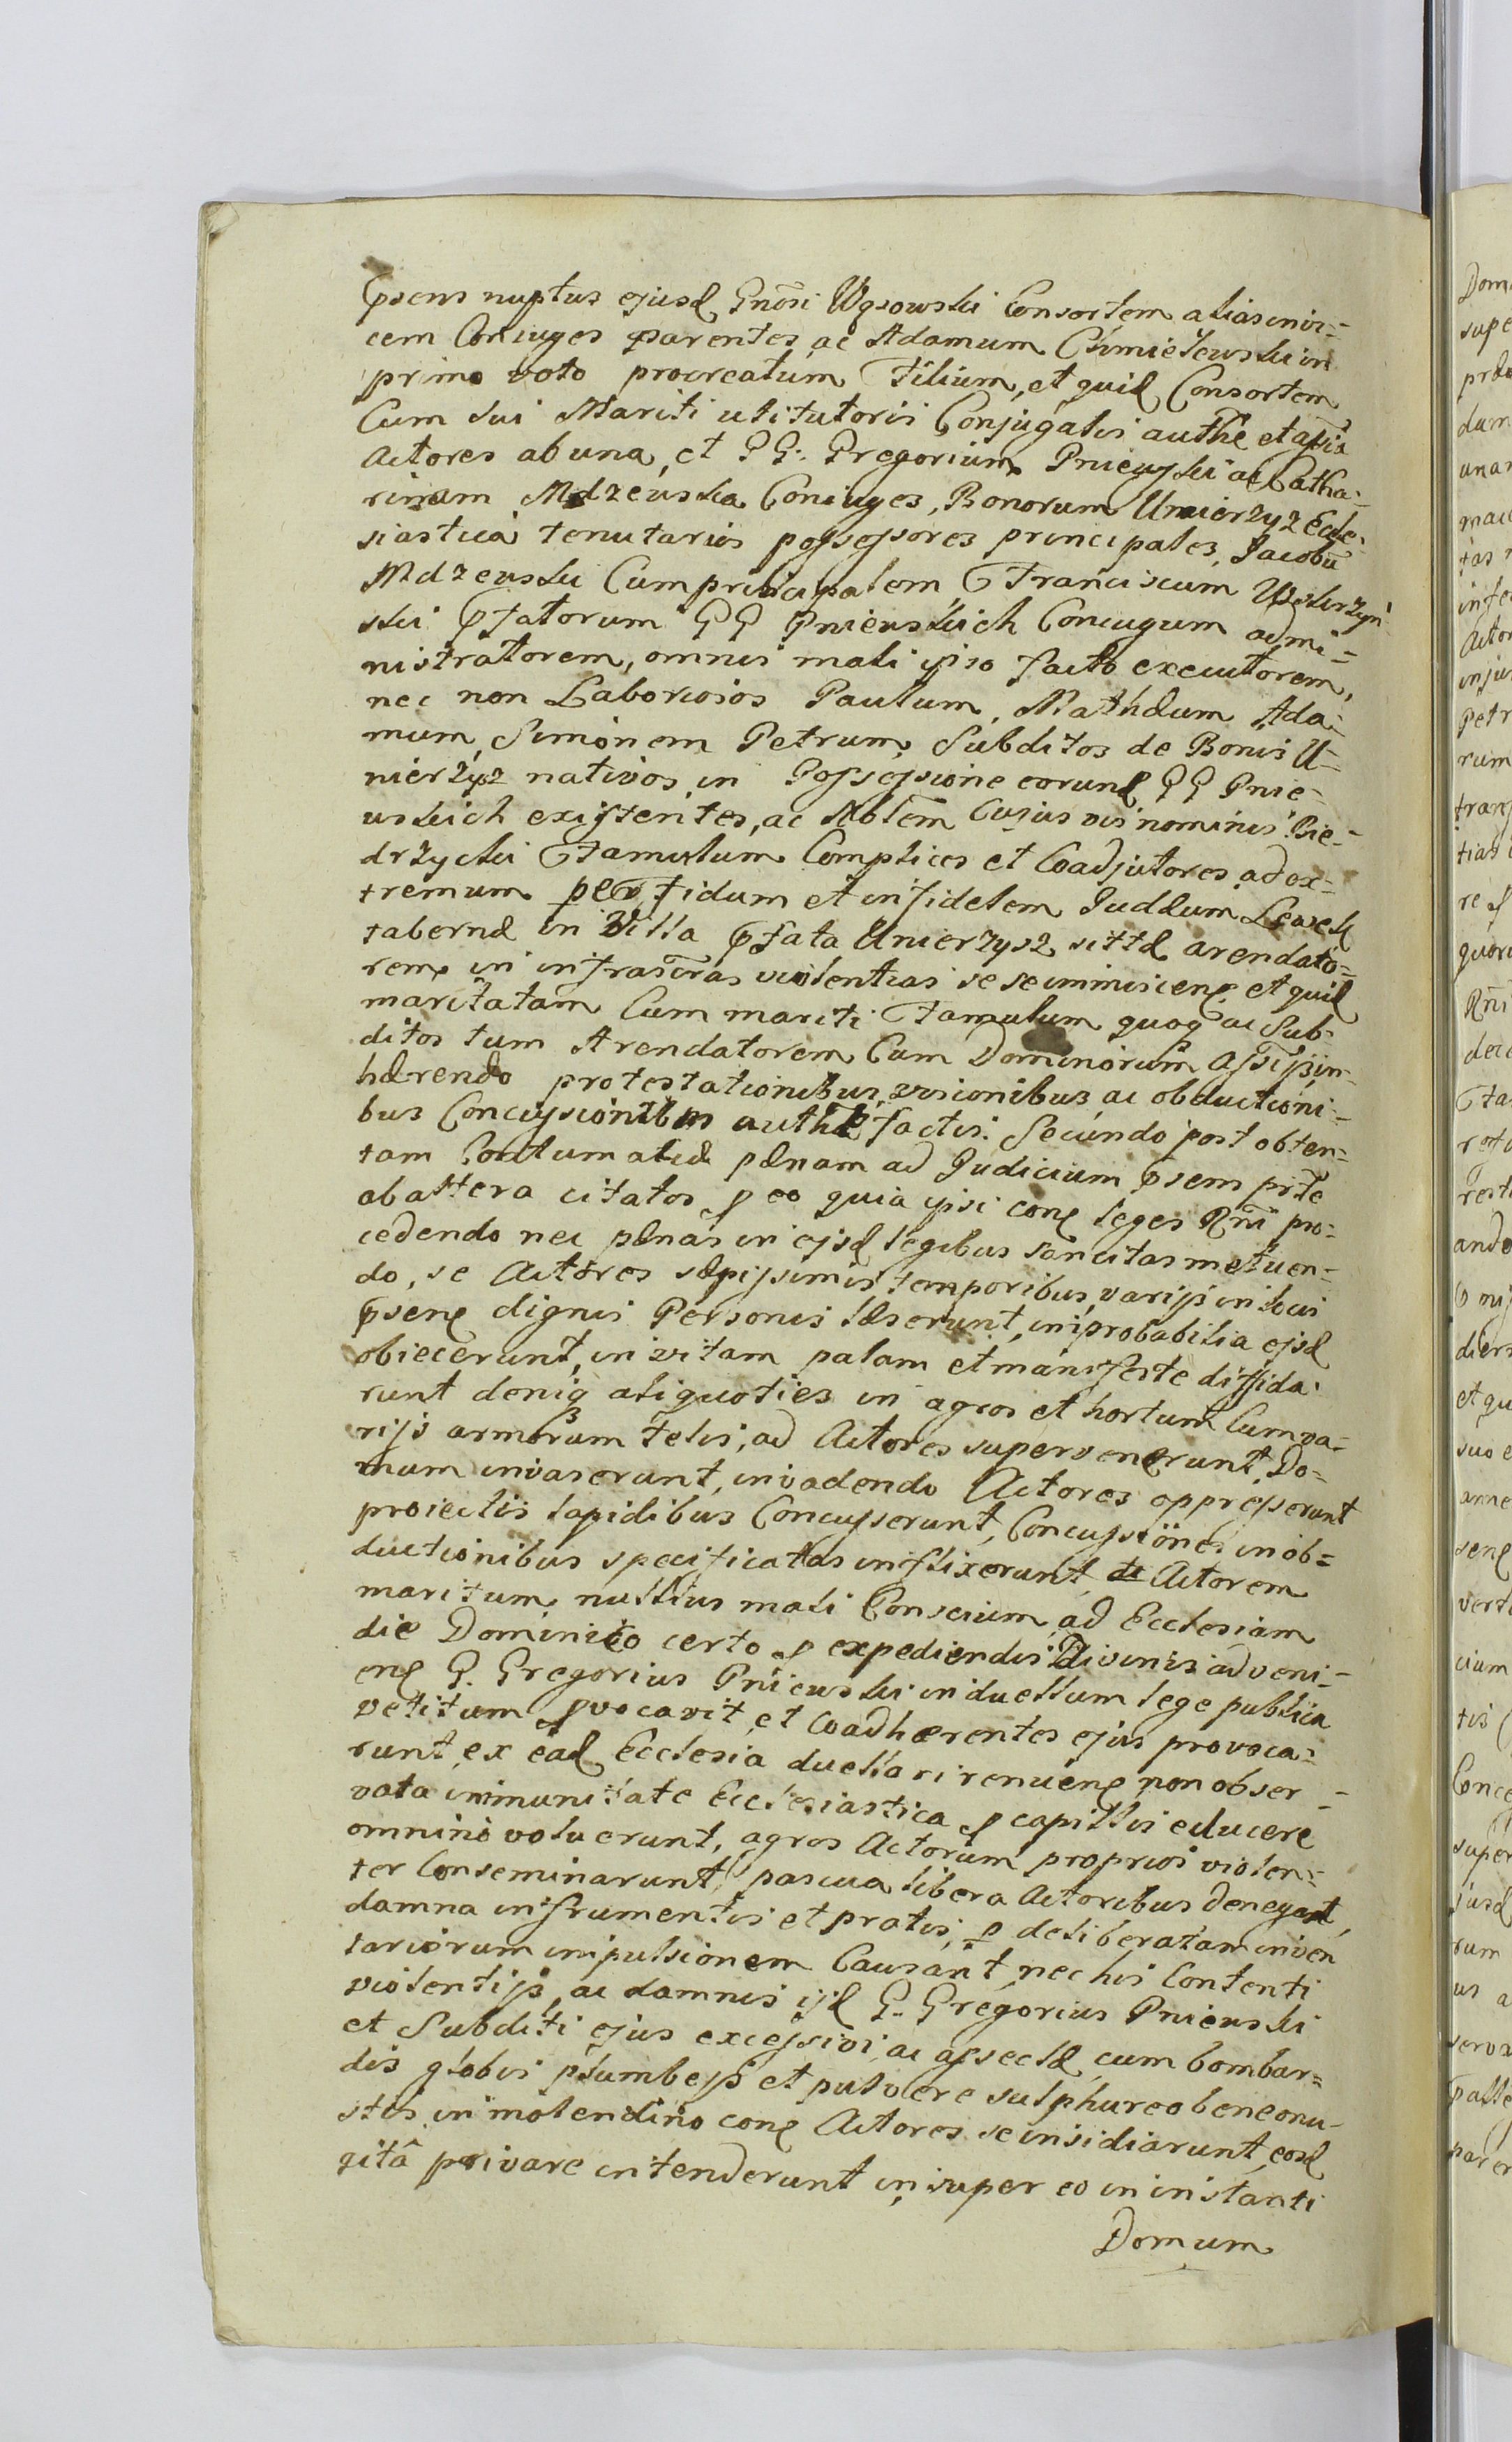 psens nuptus ejusd Gnosi Wąsowski Consortem alias invi=
cem Coniuges parentes, ac Adamum Chmielewski in
primo voto procreatum Filium, et quid Consortem
Cum sui Mariti uti tutoris Conjugalis authe et assia
Actores ab una, et GG. Gregorium Pniewski ac Catha=
rinam Mdzewska Coniuges, Bonorum Unierzyz Eccle=
siastica tenutarios possessores principales, Jacobū
Mdzewski Cumprincipalem, Franciscum
ski pfatorum GG Pniewskich Coniugum admi=
nistratorem, omnis mali ipso facto executorem,
nec non Laboriosos Paulum, Mathæum Ada=
mum, Simonem Petrum, Subditos de Bonis U=
nierzyz nativos, in Possessione eorund GG Pnie=
wskich existentes, ac Nobilem Cujusvis nominis Bie=
drzycki Famulum Complices et Coadjutores, ad ex=
tremum perfidum et infidelem Judæum Lewek
tabernæ in Villa pfata Unierzysz sittæ arendato=
rem in infrascras violentias se se immiscens, et quid
maritatam Cum mariti Famulum quoq ac Sub=
ditos tum Arendatorem Cum Dominorum Assijs in=
hærendo protestationibus, visionibus, ac obductioni=
bus Concussionibus authe factis. Secundo post obten=
tam Contumatiæ pænam ad Judicium psens prte
ab altera citatos p eo quia ipsi cone leges Rni pro=
cedendo nec pænas in ejsd legibus sancitas metuen=
do, se Actores sæpissimis temporibus, varijs in locis
psene dignis Personis læserunt, improbabilia ejsd
obiecerunt, in vitam palam et manifeste diffida=
runt deniq aliquoties in agros et hortum Cum va=
rijs armorum telis, ad Actores supervenerunt, Do=
mum invaserunt, invadendo Actores oppresserunt
proiectis lapidibus Concusserunt, Concussiones in ob=
ductionibus specificatas inflixerunt, Actorem
maritum nullius mali Conscium, ad Ecclesiam
die Dominico certo p expediendis Divinis adveni=
ene G. Gregorius Pniewski in duellum lege publica
vetitum pvocavit, et Coadhærentes ejus provoca=
runt, ex ead Ecclesia duellari renuene non obser=
vata immunitate Ecclesiastica p capillis educere
omnino voluerunt, agros Actorum proprios violen=
ter Conseminarunt, pascua libera Actoribus denegant,
damna in frumentis et pratis, p deliberatam inven
tariorum impulsionem Causant, nec his Contenti
violentijs, ac damnis ijd G. Gregorius Pniewski
et Subditi ejus excessivi ac assectæ cum bombar=
dis globis plumbejs et pulvere sulphureo bene onu=
stis in molendino cone Actores se insidiarunt, eosd
vitâ privare intenderunt, insuper eo in instanti
Domum